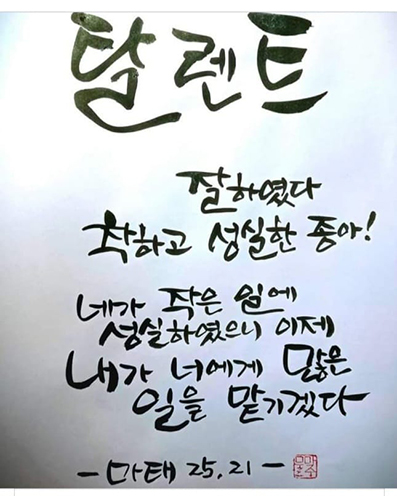 탈렌트
잘하였다
착하고 성실한 종아!
네가 작은 일에
성실하였으니 이제
내가 너에게 많은
일을 맡기겠다
- 마태 25,21 -